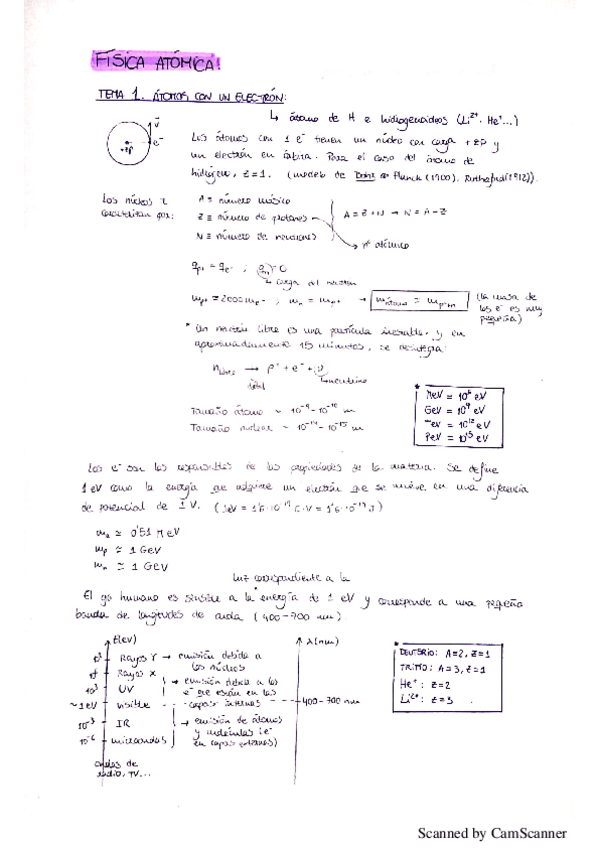 FÍSICA ATÓMICA!
TEMA 1. ÁTOMOS CON UN ELECTRÓN:
↳ átomo de H e hidrogenoides (Li²⁺, He⁺...)
v
e⁻
+zp
Los átomos con 1 e⁻ tienen un núcleo con carga +zp y
un electrón en órbita. Para el caso del átomo de
hidrógeno, z=1. (modelo de Planck (1900), Rutherford (1912)).
Los núcleos se
caracterizan por:
A ≡ número másico
Z ≡ número de protones
N ≡ número de neutrones
A = Z + N → N = A - Z
nº atómico
qp⁺ = qe⁻ ; qn = 0
↳ carga del neutrón
mp⁺ ≃ 2000 me⁻ ; mn ≃ mp⁺ → m átomo ≃ mp⁺+n
(la masa de
los e⁻ es muy
pequeña)
* Un neutrón libre es una partícula inestable, y en
aproximadamente 15 minutos, se desintegra:
n libre → p⁺ + e⁻ + ν
débil
↳ neutrino
Tamaño átomo ~ 10⁻⁹ - 10⁻¹⁰ m
Tamaño nuclear ~ 10⁻¹⁴ - 10⁻¹⁵ m
*
MeV = 10⁶ eV
GeV = 10⁹ eV
TeV = 10¹² eV
PeV = 10¹⁵ eV
Los e⁻ son los responsables de las propiedades de la materia. Se define
1 eV como la energía que adquiere un electrón que se mueve en una diferencia
de potencial de 1 V. (1eV = 1'6·10⁻¹⁹ C·V = 1'6·10⁻¹⁹ J)
me ≃ 0'51 MeV
mp ≃ 1 GeV
mn ≃ 1 GeV
luz correspondiente a la
El ojo humano es sensible a la energía de 1 eV y corresponde a una pequeña
banda de longitudes de onda (400-700 nm).
E(eV)
λ(nm)
Rayos γ → emisión debida a
los núcleos
Rayos X
10³ UV
→ emisión debida a los
e⁻ que están en las
capas internas
~1eV visible
400-700 nm
10⁻³ IR
10⁻⁶ microondas
→ emisión de átomos
y moléculas (e⁻
en capas externas)
ondas de
radio, TV...
*
DEUTERIO: A=2, Z=1
TRITIO: A=3, Z=1
He⁺: Z=2
Li²⁺: Z=3
Scanned by CamScanner